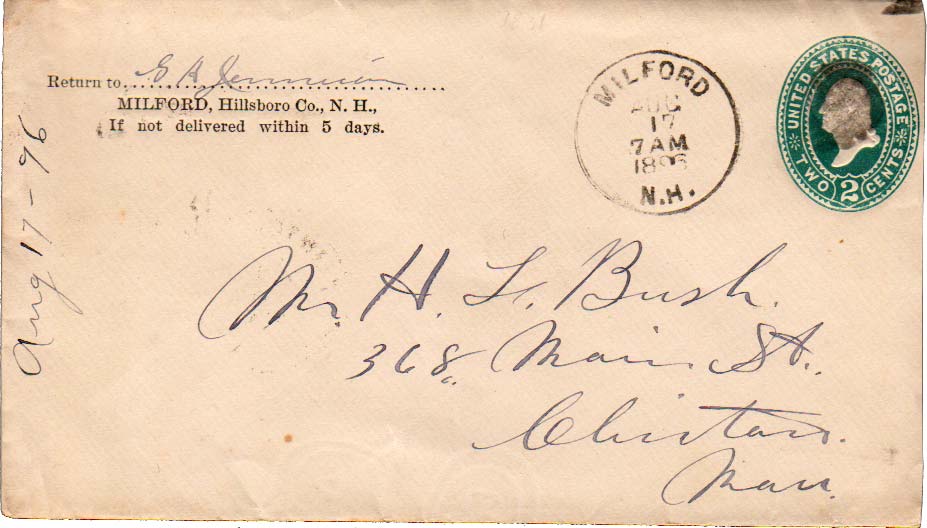 Return to E A
MILFORD, Hillsboro Co., N. H.,
If not delivered within 5 days.
Aug 17-96
MILFORD
AUG
17
7 AM
1896
N.H.
UNITED STATES POSTAGE
TWO 2 CENTS
Mr. H. L. Bush.
368 Main St.
Clinton.
Mass.